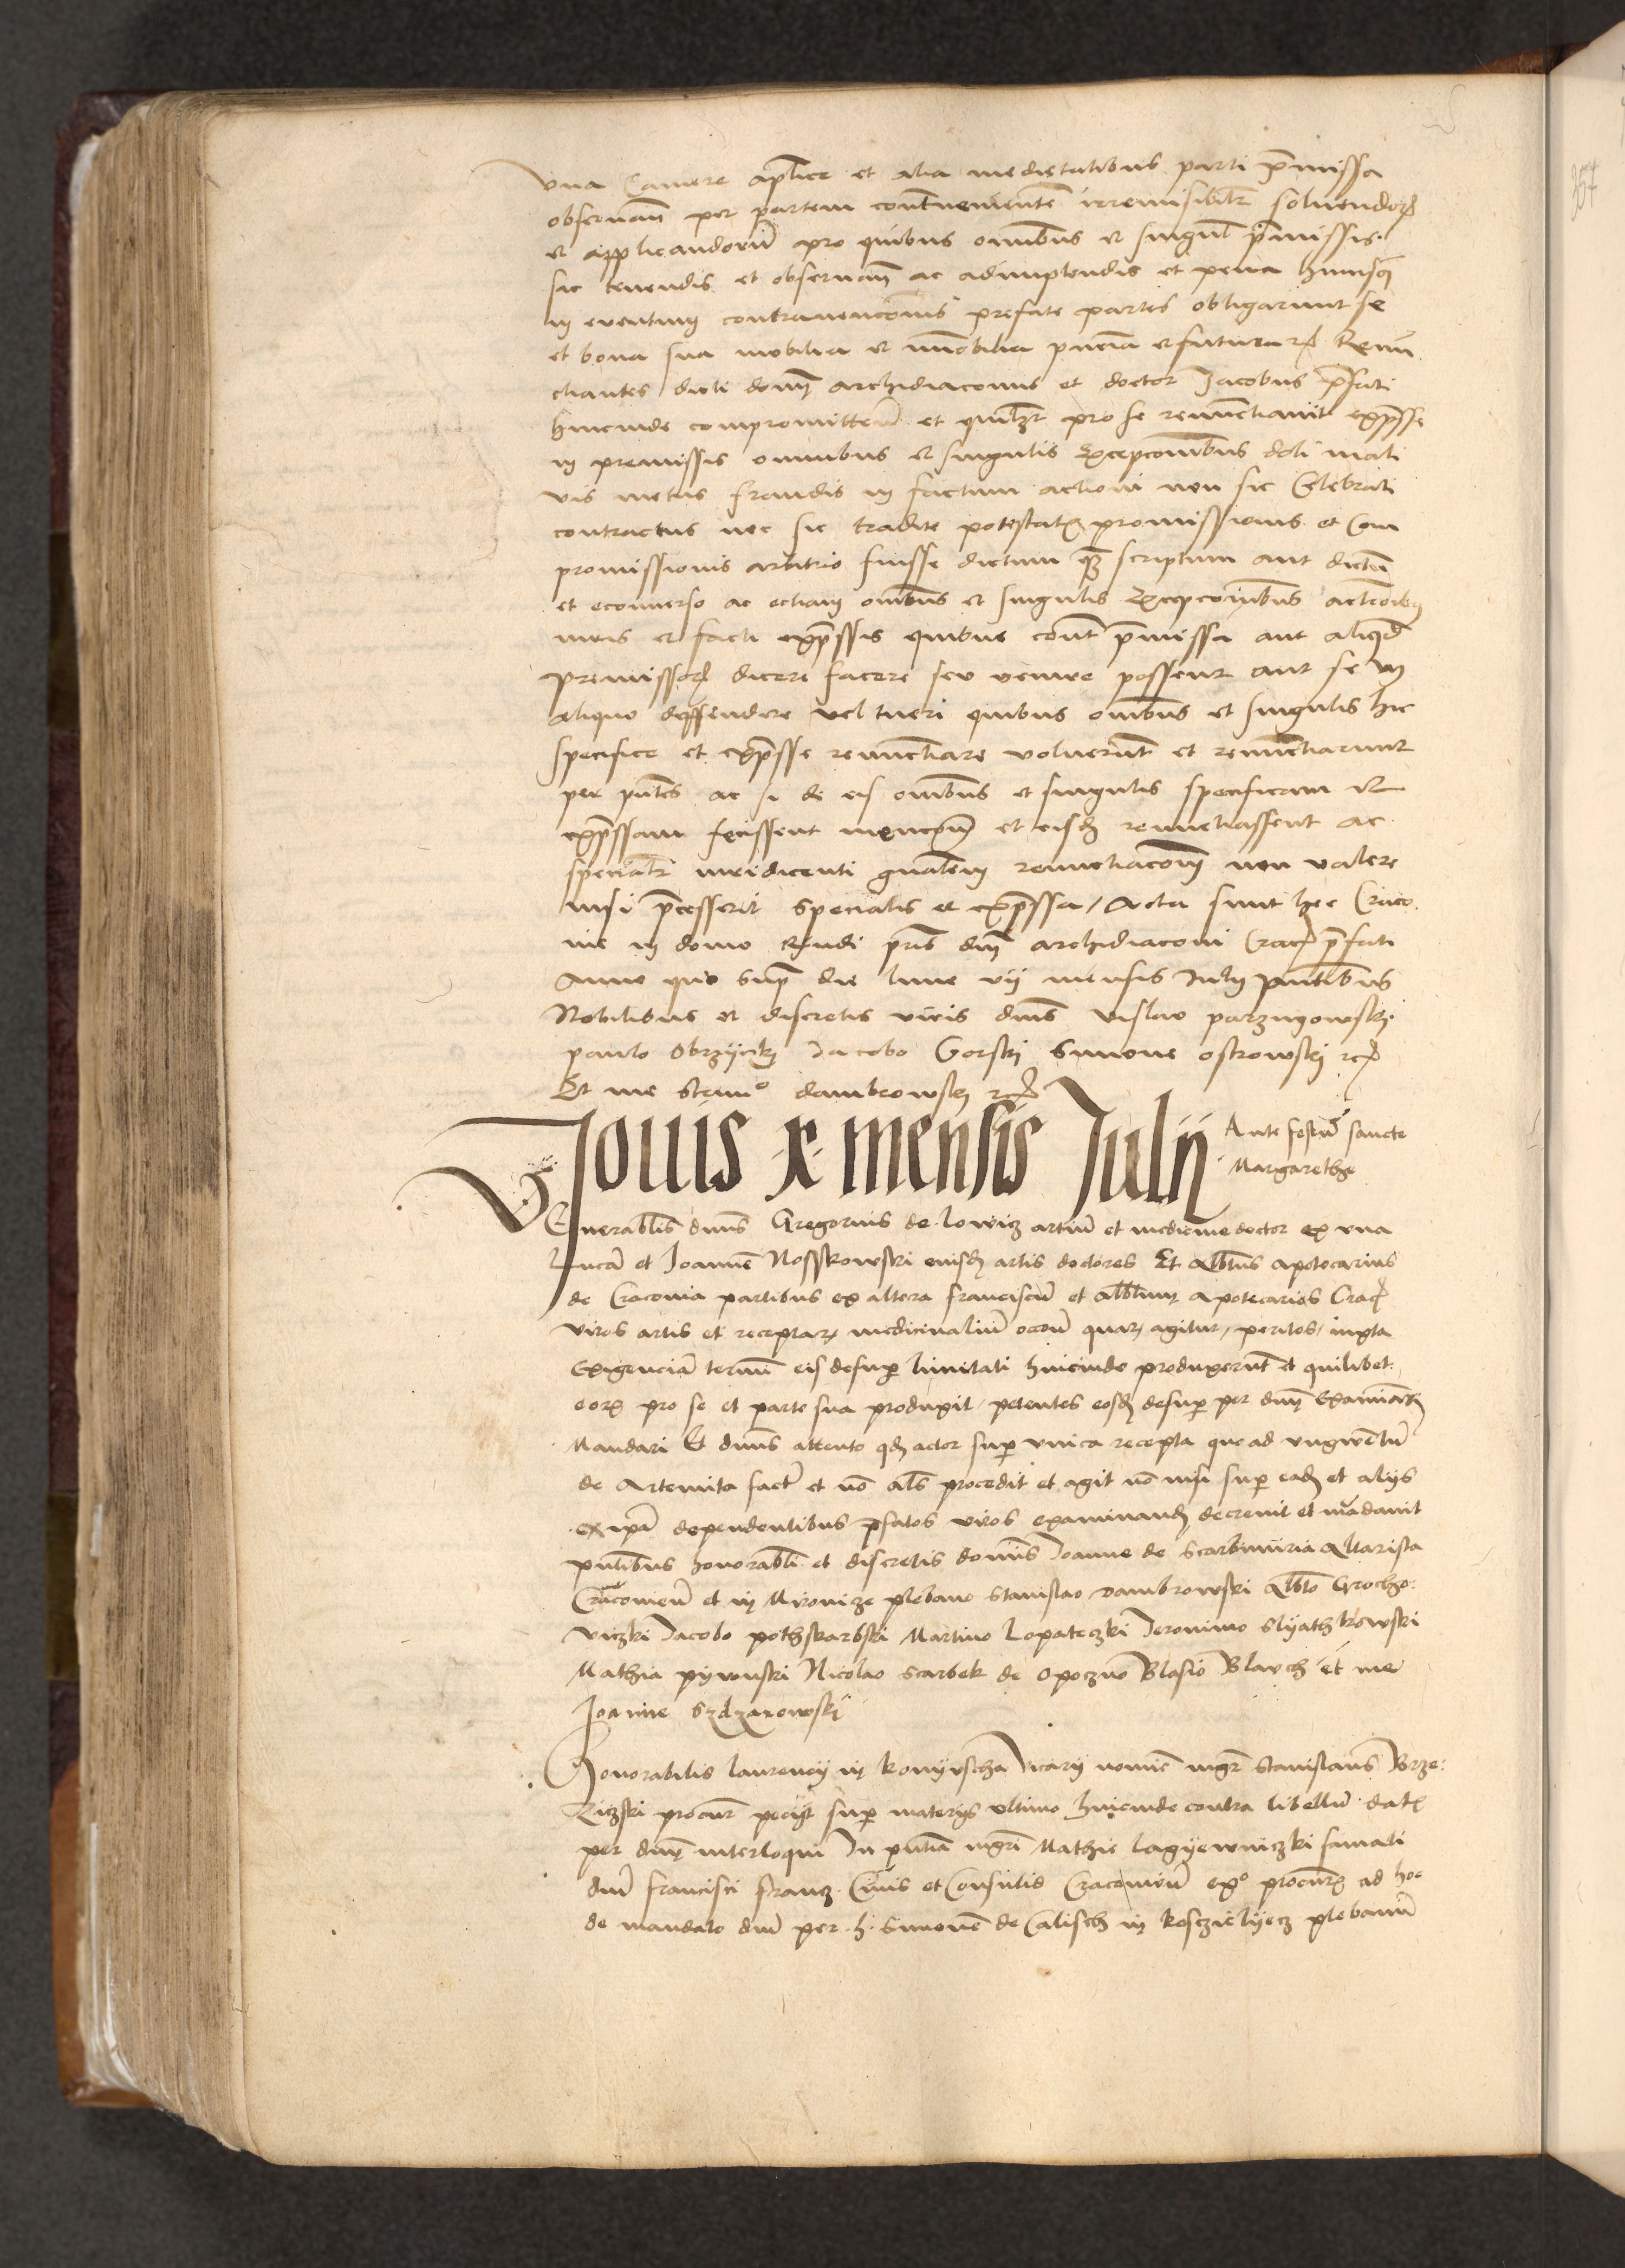 vna Camere aplice et alia medietatibus parti p̄missa
obseruan̄ per partem contrauenientē irremisibilr̄ soluendoꝝ
et applicandorū pro quibus omībus et singul p̄missis
sic tenendis et obseruan̄ ac adimplendis et pena huiusꝫ
in euentum contrauencōnis prefate partes obligarunt se
et bona sua mobilia et immobilia pn̄cia et futura rcͣ Renū
ctiantes dicti domī archidiaconus et doctor Jacobus p̄fati
hincinde compromitten̄ et quilibet pro se renuntiauit exp̄sse
in premissis omnibus et singulis Excepcōnibus doli mali
vis metus fraudis in factum actioni non sic Celebrati
contractus nec sic tradite potestatis promissionis et Com
promissionis arbitrio fuisse dictum qͣ scriptum aut dictū
et econuerso ac etiam omībus et singulis Excepcōnibus actiōibꝫ
iuris et facti exp̄ssis quibus cont̄ p̄missa aut aliqd
premissoꝝ dicere facere seu venire possent aut se in
aliquo deffendere vel tueri quibus omībus et singulis hic
specifice et exp̄sse renūctiare voluerūt et renūctiarunt
per pn̄tes ac si de eis omībus et singulis specificam et
exp̄ssam fecissent mencōnē et eisdē renūctiassent ac
specialr̄ iuridicenti gn̄alem renunctiacōnē non valere
nisi p̄cesserit specialis et exp̄ssa / Acta sunt hec Craco
uie in domo Rn̄di p̄ris dn̄i archidiaconi Cracꝫ p̄fati
Anno quo supͣ die lune vij mensis Julij pn̄tibus
Nobilibus et discretis viris dn̄is vislao parznyowski
paulo Obrzyczky Jacobo Gorski Simone ostrowskj rcͣ
Et me Stan̄o dambrowskj rcͣ
Jouis x mensis Julij Ante festū sancte
Margarethe
Venerabilis dn̄us Gregorius de lowicz artiū et medicine doctor ex vna
Lucā et Joannē Nosskowski eiusdē artis doctores Et Albtus Apotecarius
de Cracouia partibus ex altera franciscū et albtum Apotecarios Cracꝫ
viros artis et receptaꝝ medicinaliū occōe quaꝝ agitur / peritos / iuxta
Exigenciā termī eis desuper limitati hincinde produxerūt et quilibet
eorꝫ pro se et parte sua produxit / petentes eosdē desuper per dn̄m Examinari
Mandari Et dn̄us attento qd actor super vnica recepta quo ad vngwētū
de Artemita fact et nō als procedit et agit nō nisi super eadē et alijs
ex ipā dependentibus p̄fatos viros examinandos decreuit et mādauit
pn̄tibus honorabli et discretis domīs Joanne de Scarbimiria Altarista
Cracouien̄ et in Mironicze plebano Stanislao Dambrowski Albto Grocho
viczki Jacobo pothkarbski Martino Lopateczki Jeronimo Slyathkowski
Mathia pywonski Nicolao Scarbek de opoczno Blasio Blauch et me
Joanne Szdzarowskij
Honorabilis laurencij in konyuscha vicarij nomīe mgr̄ Stanislaus Brze
ziczski procur peciit super materijs vltimo hincinde contra libellū datꝭ
per dn̄m interloqui In pn̄tia mgr̄i Mathie lagyewniczki famati
dn̄i francisci francz Ciuis et Consulis Cracouien̄ ex̄o procurꝭ ad hoc
de mandato dn̄i per h Simonē de Calisch in kosczielyecz plebanū